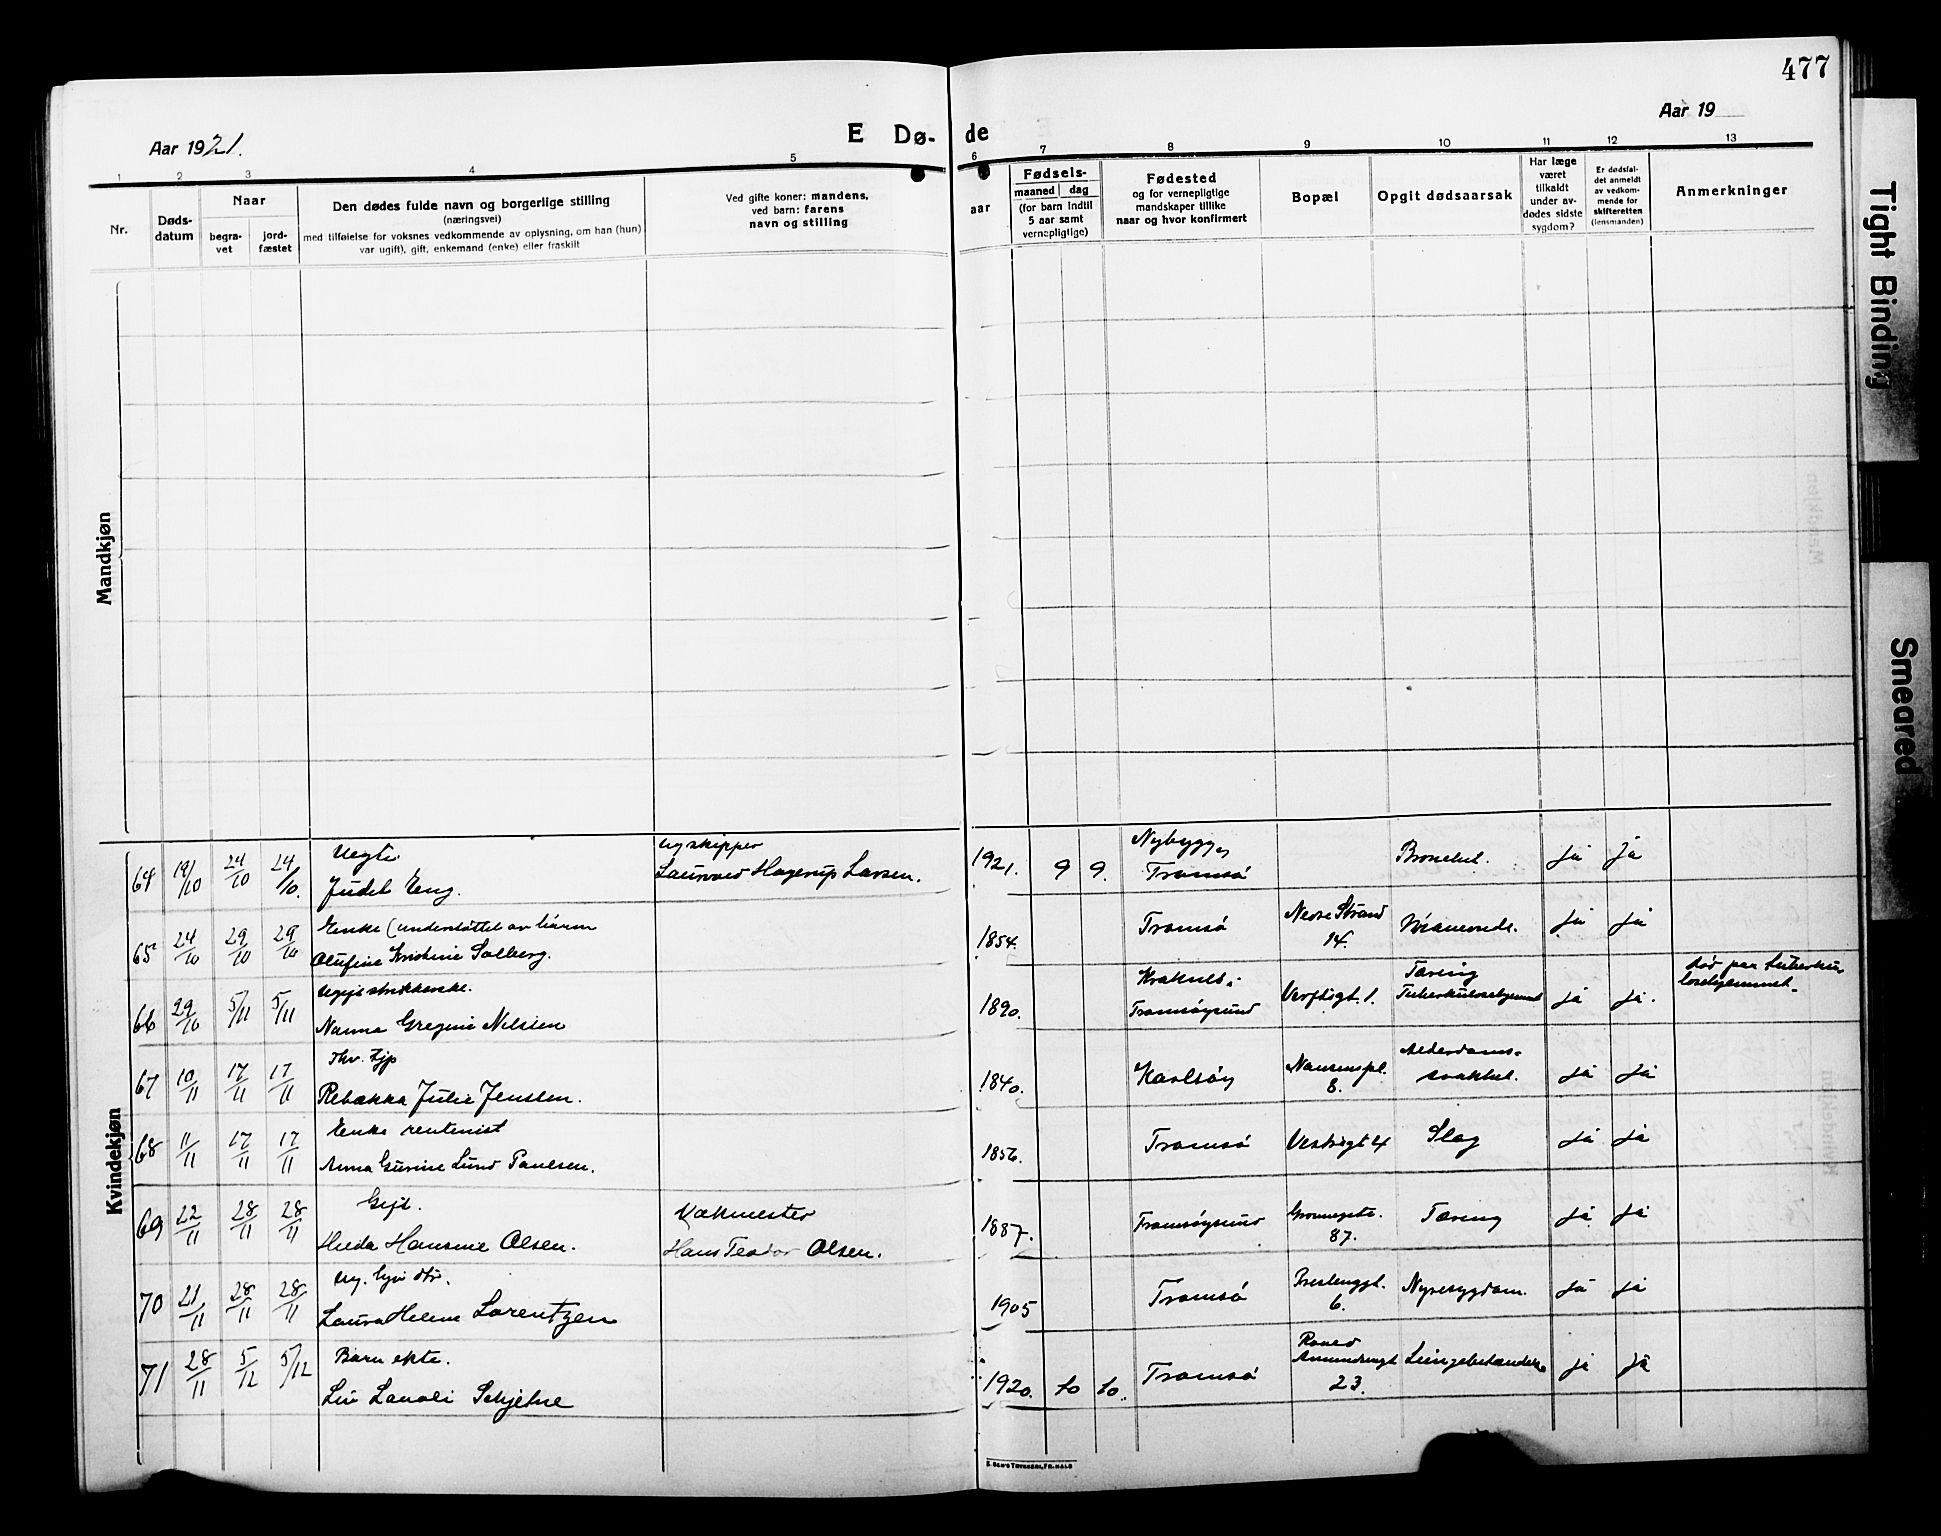 477
Aar 1921.
E Dø-
de
Aar 19
1
2
3
4
5
6
7
8
9
10
11
12
13
Nr.
Døds-
datum
Naar
begra-
vet
jord-
fæstet
Den dødes fulde navn og borgerlige stilling
(næringsvei)
med tilføielse for voksnes vedkommende av oplysning, om han (hun)
var ugift), gift, enkemand (enke) eller fraskilt
Ved gifte koner: mandens,
ved barn: farens
navn og stilling
aar
Fødsels-
maaned dag
(for barn indtil
5 aar samt
vernepligtige)
Fødested
og for vernepligtige
mandskaper tillike
naar og hvor konfirmert
Bopæl
Opgit dødsaarsak
Har læge
været
tilkaldt
under av-
dødes sidste
sygdom?
Er dødsfal-
det anmeldt
av vedkom-
mende for
skifteretten
(lensmanden)
Anmerkninger
Mandkjøn
Kvindekjøn
64 19/10 24/10 24/10.
Uegte
Judit Eng.
Ug skipper
Laurved Hagerup Larsen.
1921. 9 9.
Nybygg,
Tromsø
Bronchit.
Ja Ja
65 24/10 29/10 29/10
Enke (understøttet av barn
Olufine Kristine Solberg.
1854.
Tromsø
Nedre Strand
14.
Ja Ja
66 29/10 5/11 5/11
Nanna Gregine Nilssen
1890.
Tromsøysund
Verftsgt. 1.
Tæring
Tuberkulosehjemmet
Ja Ja.
død paa tuberku-
losehjemmet.
67 10/11 17/11 17/11
Rebekka Julie Jenssen.
1840.
Karlsøy
Nansenspl.
8.
Alderdoms-
svakhet.
Ja Ja
68 11/11 17/11 17/11
Enke rentenist
Anna Gurine Lund Paulsen.
1856.
Tromsø
Vestregt 4
Slag
Ja Ja
69 22/11 28/11 28/11
Gift.
Hilda Hansine Olsen.
Hans Teodor Olsen.
1887.
Tromsøysund
Grønnegate.
87.
Tæring
Ja Ja
70 21/11 28/11 28/11
Laura Helene Lorentzen
1905
Tromsø
6.
Nyresygdom.
Ja Ja
71 28/11 5/12 5/12
Barn ekte.
Liv Lauoli Schjelne
1920. 10 10.
Tromsø
Roald
Amundsensgt
23.
Lungebetændelse
Ja Ja
Tight Binding
Smeared